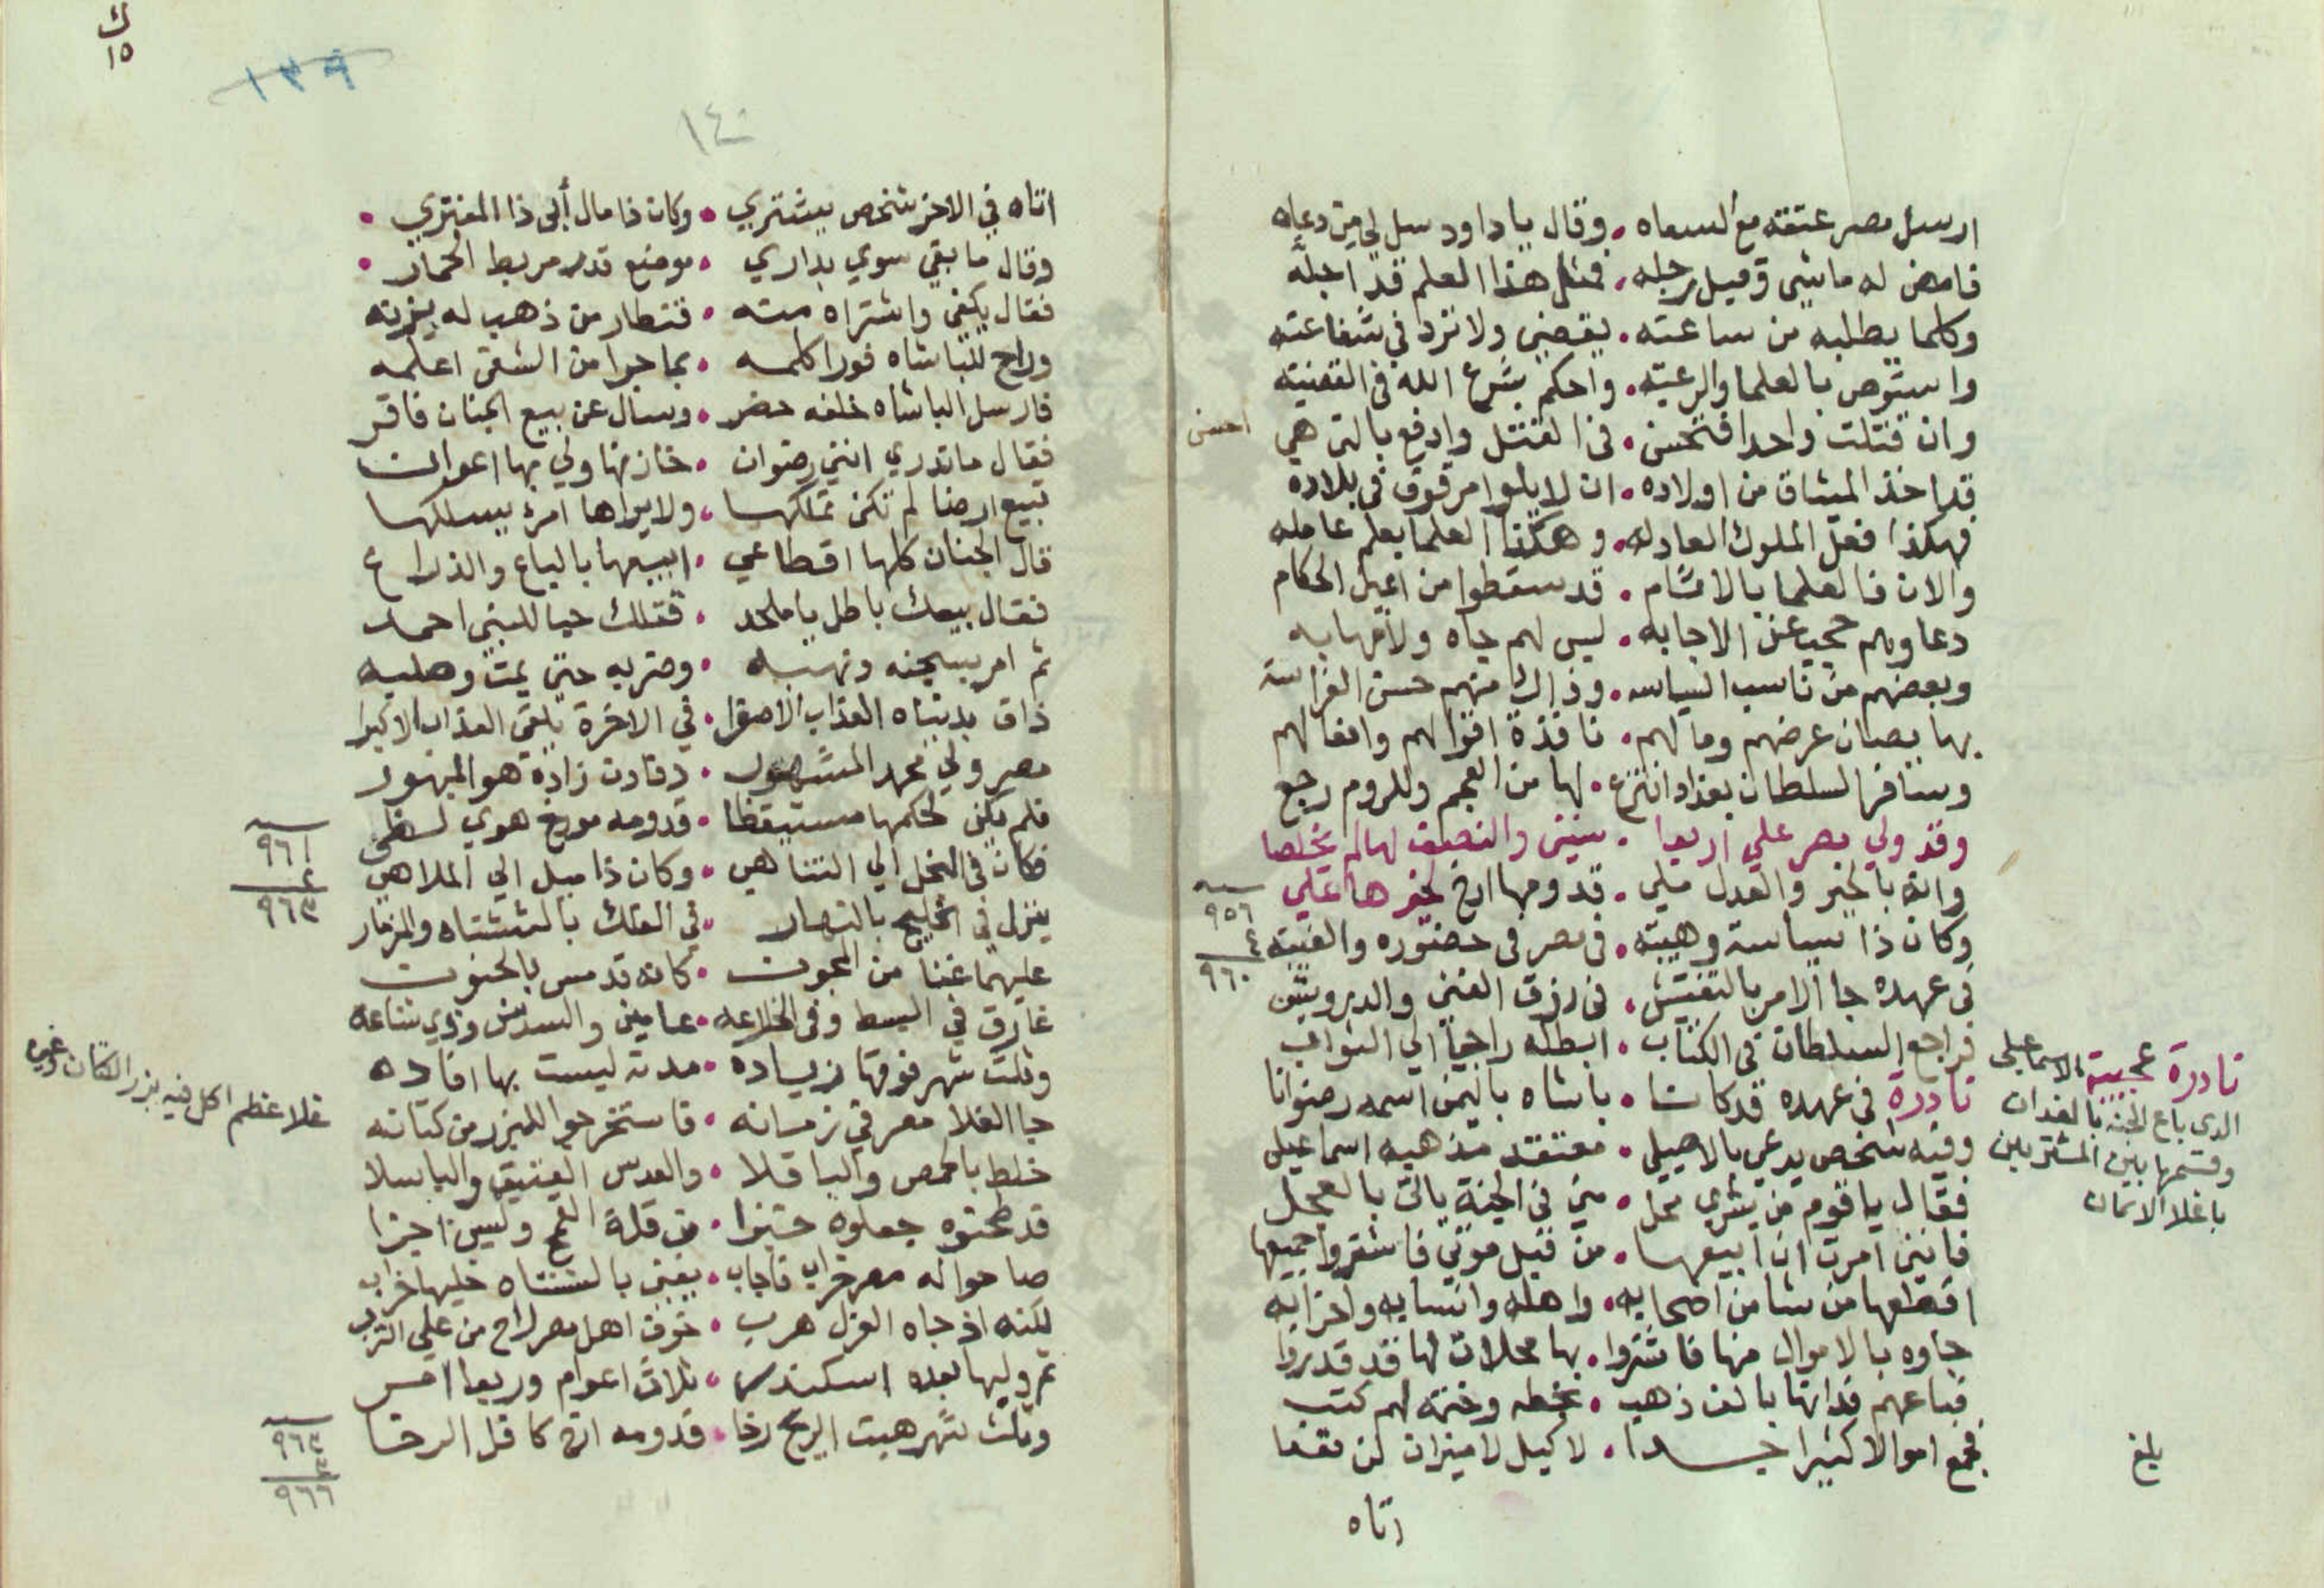 ارسل مصر عتقه مع السعاه • وقال يا داود سل لي من دعاه
فامض له ماشي وقبل رجله • فمثل هذا العلم قد اجله
وكلما يطلبه من ساعته • يقضى ولا ترد في شفاعته
واستوص بالعلما والرعيته • واحكم بشرع الله في القضيته
وان قتلت واحدا فتحسن • في القتل وادفع بالتي هي احسن
قد اخذ الميثاق من اولاده • ان لا يلوا مرقوق في بلاده
فهكذا فعل الملوك العادله • وهكذا العلما بعلم عامله
والان فالعلما بالاقسام • قد سقطوا من اعين الحكام
دعاوهم حجب عن الاجابه • ليس لهم جاه ولا مهابه
وبعضهم من ناسب السياسه • وذاك منهم حسن الفراسة
بها يصان عرضهم ومالهم • نافذة اقوالهم وافعالهم
وسافر السلطان بغداد انتزع • لها من العجم وللروم رجع
وقد ولي مصر علي اربعا • سنين والنصف لها لم يخلصا
وانه بالخير والعدل ملي • قدومها ارخ لخيرها علي
٩٥٦
٤
٩٦٠
وكان ذا سياسة وهيبته • في مصر في حضوره والغيبته
في عهده جا الامر بالتفتيش • في رزق الغني والدرويش
فراجع السلطان في الكتاب • ابطله راجيا الي الثواب
نادرة في عهده قد كانا • باشاه باليمن اسمه رضوانا
وفيه شخص يدعي بالاصيلي • معتقد مذهبه اسماعيلي
فقال يا قوم من يشري محل • مني في الجنة يات بالعجل
فانني امرت ان ابيعها • من قبل موتي فاشتروا جميعها
اقطعها من شا من اصحابه • واهله وانسابه واحزابه
جاوه بالاموال منها فاشتروا • بها محلات لها قد قدروا
فباعهم فدانها بالف ذهب • بخطه وختمه لهم كتب
فجمع اموالا كثيرا جدا • لا كيل لا ميزان لن تعدا
اتاه
نادرة عجيبة الاسماعيلي
الذي باع الجنة بالفدان
وقسمها بين المشتريين
باغلا الاثمان
بلغ
ك
١٥
١٣٩
١٤٠
اتاه في الاخر شخص يشتري • وكان ذا مال أبى ذا المفتري •
وقال ما بقي سوي بداري • موضع قدر مربط الحمار •
فقال يكفي واشتراه منه • قنطار من ذهب له يزنه
وراح للباشاه فورا كلمه • بما جرا من الشقي اعلمه
فارسل الباشاه خلفه حضر • وسال عن بيع الجنان فاقر
فقال ما تدري انني رضوان • خازنها ولي بها اعوان
تبيع ارضا لم تكن تملكها • ولا يراها امرئ يسلكها
قال الجنان كلها اقطاعي • ابيعها بالباع والذراع
فقال بيعك باطل يا ملحد • قتلك حيا للنبي احمد
ثم امر بسجنه ونهبه • وضربه حتى يمت وصلبه
ذاق بدنياه العذاب الاصغرا • في الاخرة يلقى العذاب الاكبرا
مصر ولي محمد المشهور • دفادن زادة هو المبهور
فلم يكن لحكمها مستيقظا • قدومه مورخ هوي لظى
٩٦١
٢
٩٦٣
فكان في البخل الي التناهي • وكان ذا ميل الي الملاهي
ينزل في الخليج بالنهار • في الفلك بالششتاه والمزمار
عليهما غنا من المجون • كانه قد مس بالجنون
غارق في البسط وفي الخلاعه • عامين والسدس وذي شناعه
وثلث شهر فوقها زياده • مدته ليست بها افاده
جا الغلا مصر في زمانه • فاستخرجوا للبزر من كتانه
غلا عظيم اكل فيه بزر الكتان وغيره
خلط بالحمص والباقلا • والعدس العتيق والباسلا
قد طحنوه جعلوه خبزا • من قلة القمح وليس اجزا
صاحوا له مصر خراب فاجاب • يغني بالششتاه خليها خراب
لكنه اذ جاه العزل هرب • خوف اهل مصر راح من علي الترب
ثم وليها بعده اسكندر • ثلاث اعوام وربعا
وثلث شهر هبت الريح رخا • قدومه ارخ كافل الرخا
٩٦٣
٣
٩٦٦